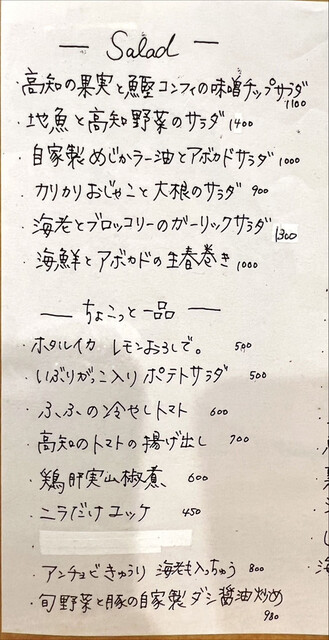 — Salad —
・高知の果実と鰹コンフィの味噌チップサラダ 1100
・地魚と高知野菜のサラダ 1400
・自家製めじかラー油とアボカドサラダ 1000
・カリカリおじゃこと大根のサラダ 900
・海老とブロッコリーのガーリックサラダ 1300
・海鮮とアボカドの生春巻き 1000
— ちょこっと一品 —
・ホタルイカ レモンおろしで。 500
・いぶりがっこ入り ポテトサラダ 500
・ふ、ふの冷やしトマト 600
・高知のトマトの揚げ出し 700
・鶏肝実山椒煮、 600
・ニラだけコロッケ 450
・アンチョビきゅうり 海老も入っちゅう 800
・旬野菜と豚の自家製ダシ醤油炒め 980